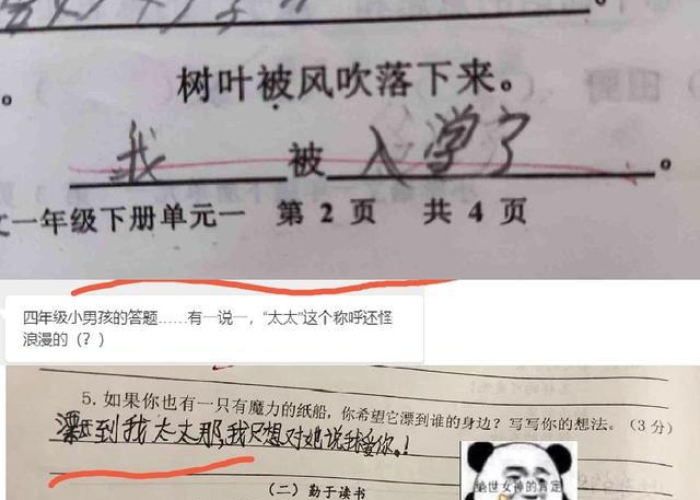 树叶被风吹落下来。
我 被 入学了 。
文一年级下册单元一 第 2 页 共 4 页
四年级小男孩的答题……有一说一，“太太”这个称呼还怪
浪漫的（？）
5. 如果你也有一只有魔力的纸船，你希望它漂到谁的身边？写写你的想法。（3 分）
漂到我太太那,我只想对她说我爱你。!
绝世女神的肯定
（二）勤于读书